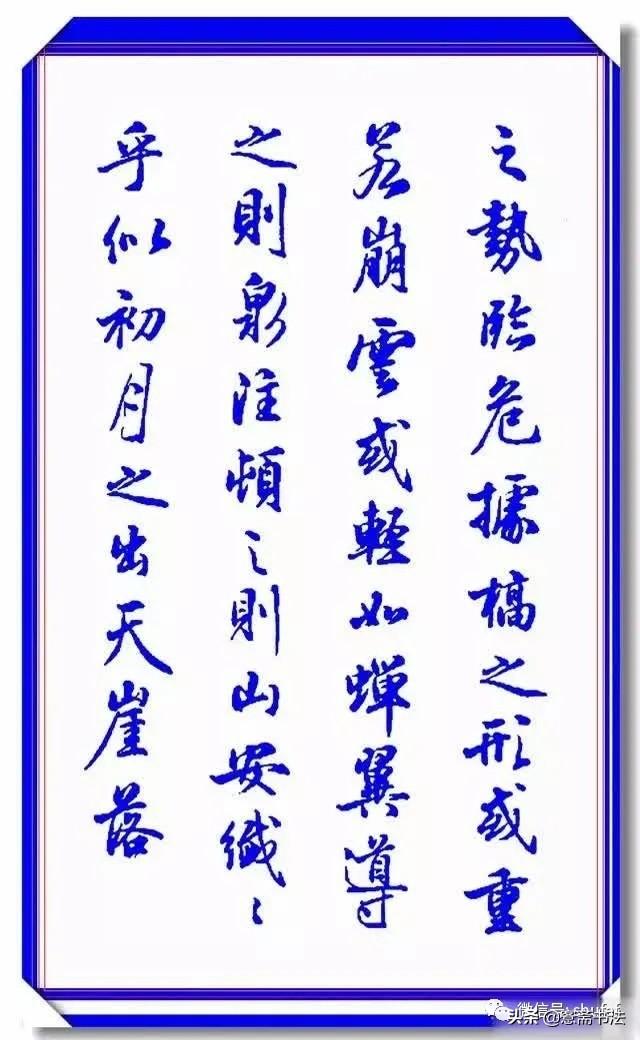 之勢臨危據槁之形或重
若崩雲或輕如蟬翼導
之則泉注頓之則山安纖〻
乎似初月之出天崖落
微信号: shufaf
头条@意斋书法